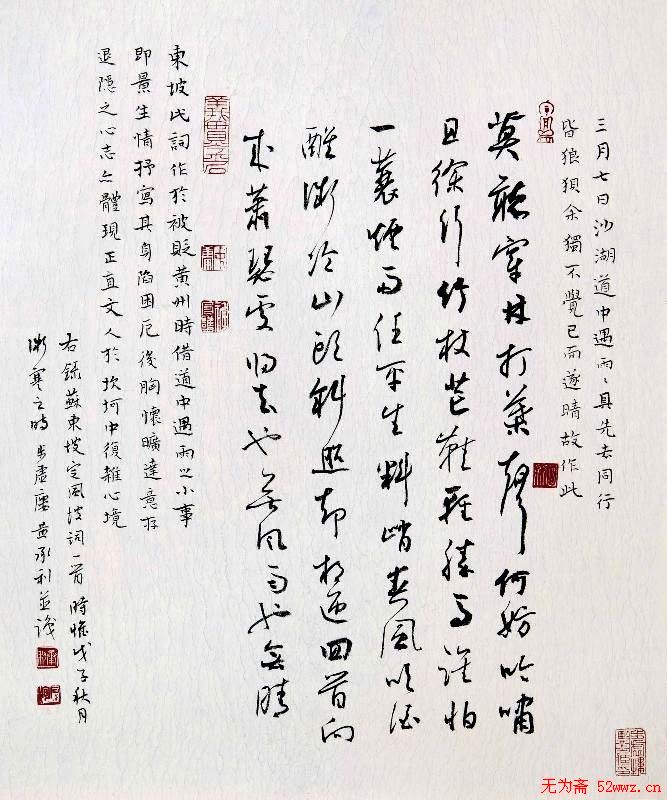 三月七日沙湖道中遇雨〻具先去同行
皆狼狽余獨不覺已而遂晴故作此
莫聽穿林打葉聲何妨吟嘯
且徐行竹杖芒鞋輕勝馬誰怕
一蓑煙雨任平生料峭春風吹酒
醒微冷山頭斜照却相迎回首向
来蕭瑟處归去也無風雨也無晴
東坡氏詞作於被貶黄州時借道中遇雨之小事
即景生情抒寫其身陷困厄後胸懷曠達意存
退隱之心志亦體現正直文人於坎坷中復雜心境
右録蘇東坡定風波詞一首 時惟戊子秋月
漸寒之時 黄承利並識
无为斋 52wwz.cn